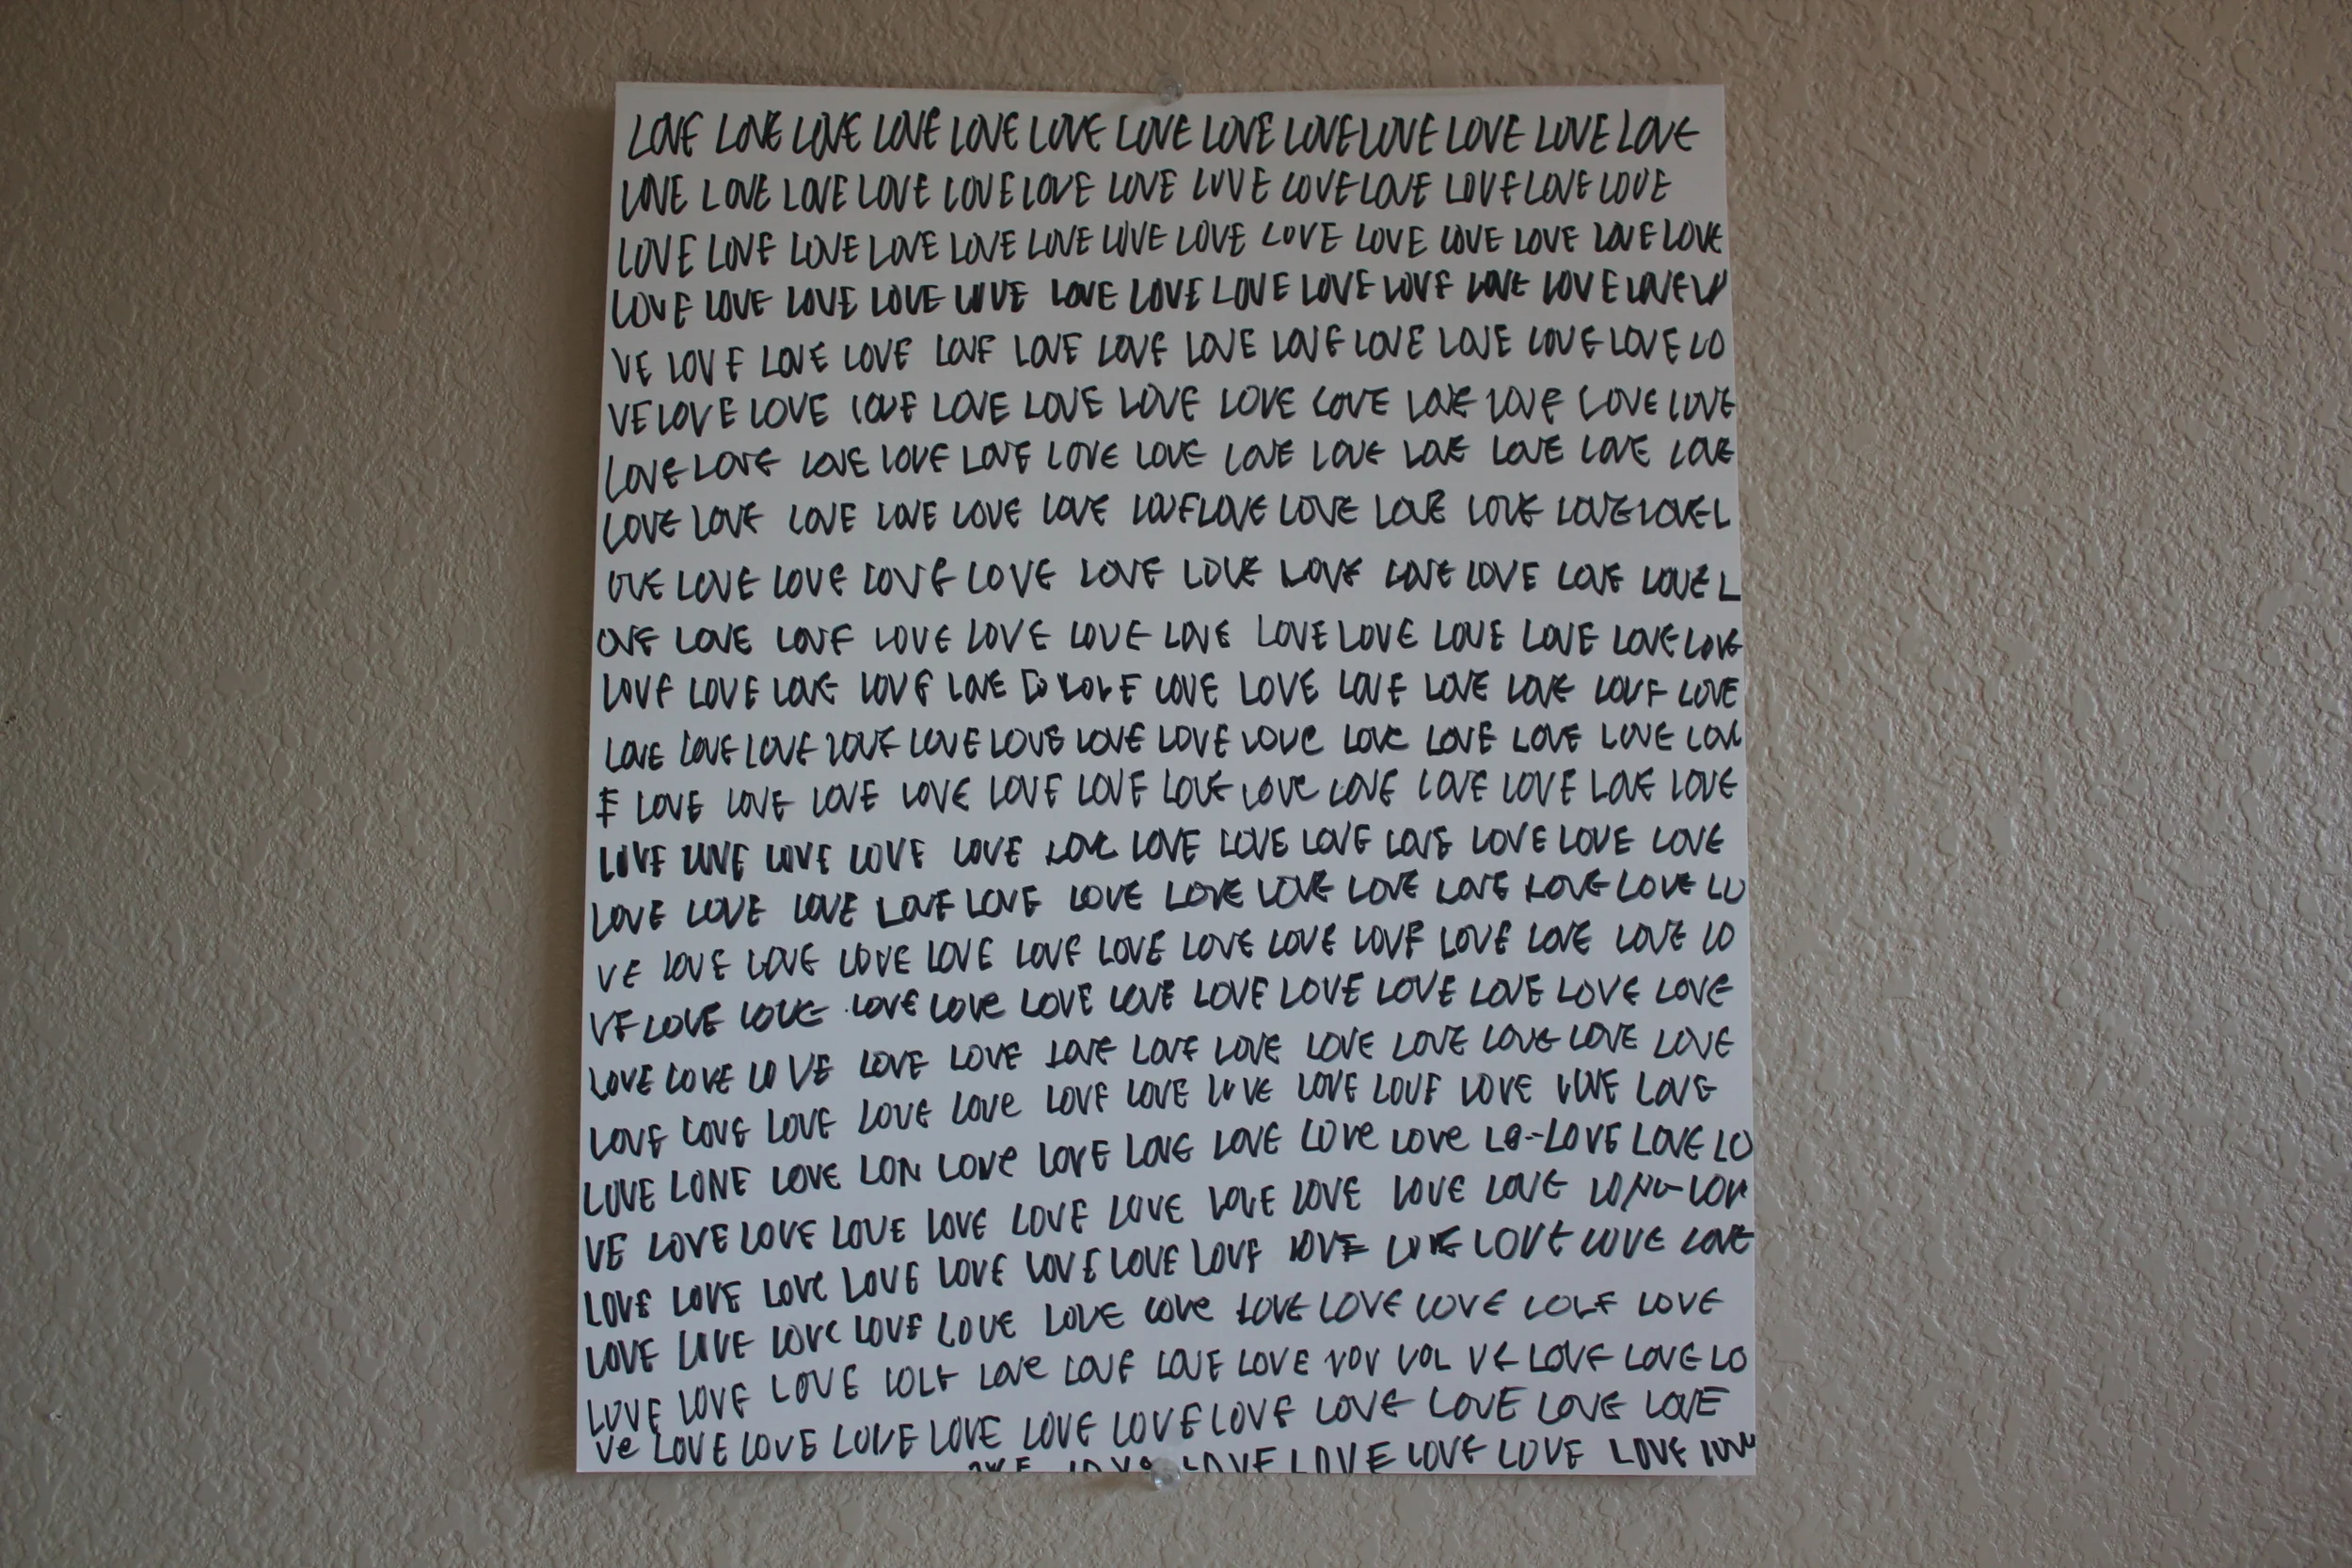 LOVE LOVE LOVE LOVE LOVE LOVE LOVE LOVE LOVE LOVE LOVE LOVE LOVE
LOVE LOVE LOVE LOVE LOVE LOVE LOVE LOVE LOVE LOVE LOVE LOVE LOVE
LOVE LOVE LOVE LOVE LOVE LOVE LOVE LOVE LOVE LOVE LOVE LOVE LOVE LOVE
LOVE LOVE LOVE LOVE LOVE LOVE LOVE LOVE LOVE LOVE LOVE LOVE LOVE LO
VE LOVE LOVE LOVE LOVE LOVE LOVE LOVE LOVE LOVE LOVE LOVE LOVE LO
VE LOVE LOVE LOVE LOVE LOVE LOVE LOVE LOVE LOVE LOVE LOVE LOVE
LOVE LOVE LOVE LOVE LOVE LOVE LOVE LOVE LOVE LOVE LOVE LOVE LOVE
LOVE LOVE LOVE LOVE LOVE LOVE LOVE LOVE LOVE LOVE LOVE LOVE LOVE L
OVE LOVE LOVE LOVE LOVE LOVE LOVE LOVE LOVE LOVE LOVE LOVE L
OVE LOVE LOVE LOVE LOVE LOVE LOVE LOVE LOVE LOVE LOVE LOVE LOVE
LOVE LOVE LOVE LOVE LOVE LO LOVE LOVE LOVE LOVE LOVE LOVE LOVE LOVE
LOVE LOVE LOVE LOVE LOVE LOVE LOVE LOVE LOVE LOVE LOVE LOVE LOVE LOV
E LOVE LOVE LOVE LOVE LOVE LOVE LOVE LOVE LOVE LOVE LOVE LOVE LOVE
LOVE LOVE LOVE LOVE LOVE LOVE LOVE LOVE LOVE LOVE LOVE LOVE LOVE
LOVE LOVE LOVE LOVE LOVE LOVE LOVE LOVE LOVE LOVE LOVE LOVE LO
VE LOVE LOVE LOVE LOVE LOVE LOVE LOVE LOVE LOVE LOVE LOVE LOVE LO
VE LOVE LOVE LOVE LOVe LOVE LOVE LOVE LOVE LOVE LOVE LOVE LOVE
LOVE LOVE LOVE LOVE LOVE LOVE LOVE LOVE LOVE LOVE LOVE LOVE LOVE
LOVE LOVE LOVE LOVE LOVe LOVE LOVE LOVE LOVE LOVE LOVE LOVE LOVE
LOVE LONE LOVE LON LOVe LOVE LOVE LOVE LOVe LOVe LO-LOVE LOVE LO
VE LOVE LOVE LOVE LOVE LOVE LOVE LOVE LOVE LOVE LOVE LOV
LOVE LOVE LOVe LOVE LOVE LOVE LOVE LOVE LOVE LOVE LOVE LOVE LOVE
LOVE LOVE LOVE LOVE LOVE LOVE LOVe LOVE LOVE LOVE LOVE LOVE
LOVE LOVE LOVE LOVE LOVe LOVE LOVE LOVE VOV VOL VE LOVE LOVE LO
Ve LOVE LOVE LOVE LOVE LOVE LOVE LOVE LOVE LOVE LOVE LOVE
LOVE LOVE LOVE LOVE LOVE LOV